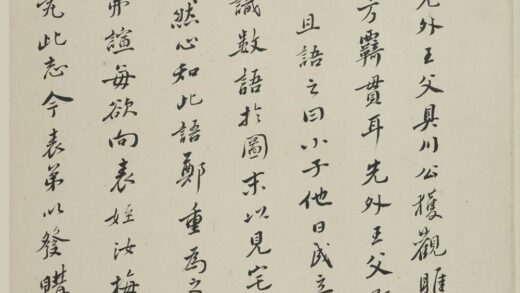 先外王父具川公獲觀
方覊貫耳先外王父
且語之曰小子他日成立
識數語於圖末以見宅
然心知此語鄭重為
弗諼每欲向表姪汝梅
此志今表弟以發